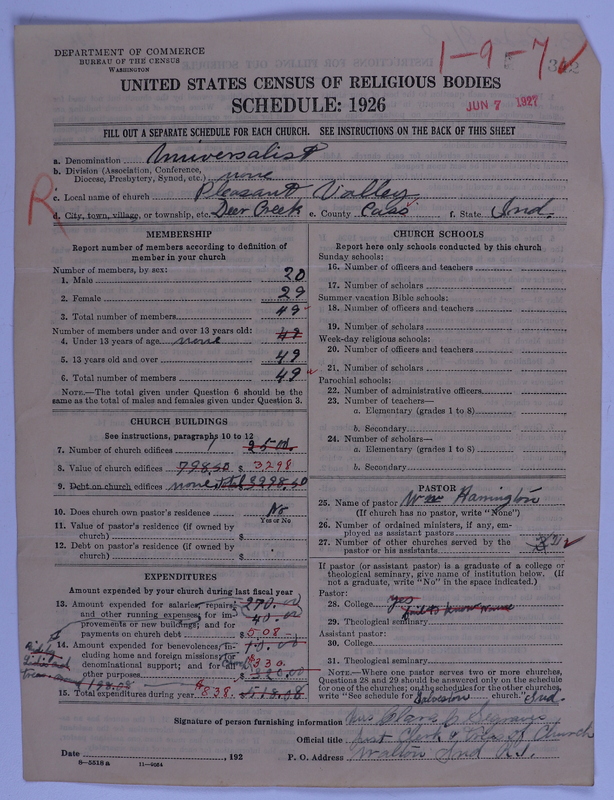 DEPARTMENT OF COMMERCE
BUREAU OF THE CENSUS
WASHINGTON
1-9-7
UNITED STATES CENSUS OF RELIGIOUS BODIES
SCHEDULE: 1926
JUN 7 1927
FILL OUT A SEPARATE SCHEDULE FOR EACH CHURCH. SEE INSTRUCTIONS ON THE BACK OF THIS SHEET
R
a. Denomination Universalist
b. Division (Association, Conference, Diocese, Presbytery, Synod, etc.) none
c. Local name of church Pleasant Valley
d. City, town, village, or township, etc. Deer Creek e. County Cass f. State Ind.
MEMBERSHIP
Report number of members according to definition of
member in your church
Number of members, by sex:
1. Male 20
2. Female 29
3. Total number of members 49
Number of members under and over 13 years old:
4. Under 13 years of age none 49
5. 13 years old and over 49
6. Total number of members 49
NOTE.—The total given under Question 6 should be the
same as the total of males and females given under Question 3.
CHURCH BUILDINGS
See instructions, paragraphs 10 to 12
7. Number of church edifices 1 2500.
8. Value of church edifices 798.50 $ 3298
9. Debt on church edifices none total 3298.50
10. Does church own pastor's residence No
Yes or No
11. Value of pastor's residence (if owned by
church) $
12. Debt on pastor's residence (if owned by
church) $
EXPENDITURES
Amount expended by your church during last fiscal year
13. Amount expended for salaries, repairs,
and other running expenses; for im-
provements or new buildings; and for
payments on church debt $ 508
14. Amount expended for benevolences, in-
cluding home and foreign missions; for
denominational support; and for all
other purposes $ 330
15. Total expenditures during year $ 838.
CHURCH SCHOOLS
Report here only schools conducted by this church
Sunday schools:
16. Number of officers and teachers
17. Number of scholars
Summer vacation Bible schools:
18. Number of officers and teachers
19. Number of scholars
Week-day religious schools:
20. Number of officers and teachers
21. Number of scholars
Parochial schools:
22. Number of administrative officers
23. Number of teachers—
a. Elementary (grades 1 to 8)
b. Secondary
24. Number of scholars—
a. Elementary (grades 1 to 8)
b. Secondary
PASTOR
25. Name of pastor Wm Harrington
(If church has no pastor, write "None")
26. Number of ordained ministers, if any, em-
ployed as assistant pastors
27. Number of other churches served by the
pastor or his assistants
If pastor (or assistant pastor) is a graduate of a college or
theological seminary, give name of institution below. (If
not a graduate, write "No" in the space indicated.)
Pastor:
28. College yes
29. Theological seminary
Assistant pastor:
30. College
31. Theological seminary
NOTE.—Where one pastor serves two or more churches,
Questions 28 and 29 should be answered only on the schedule
for one of the churches; on the schedules for the other churches,
write "See schedule for Galveston church." Ind.
Signature of person furnishing information Mrs Clara C
Official title Clerk & of Church
Date , 192 P. O. Address Walton Ind
8—5518a 11—9084